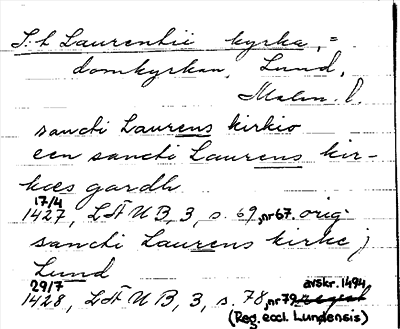 S:t Laurentii kyrka, =
domkyrkan, Lund,
Malm. l.
sancti Laurens kirkio
een sancti Laurens kir-
kæs gardh
17/4
1427, LÄUB, 3, s. 69, nr 67. orig.
sancti Laurens kirke j
Lund
29/7 avskr. 1494
1428, LÄUB, 3, s. 78, nr 79
(Reg. eccl. Lundensis)